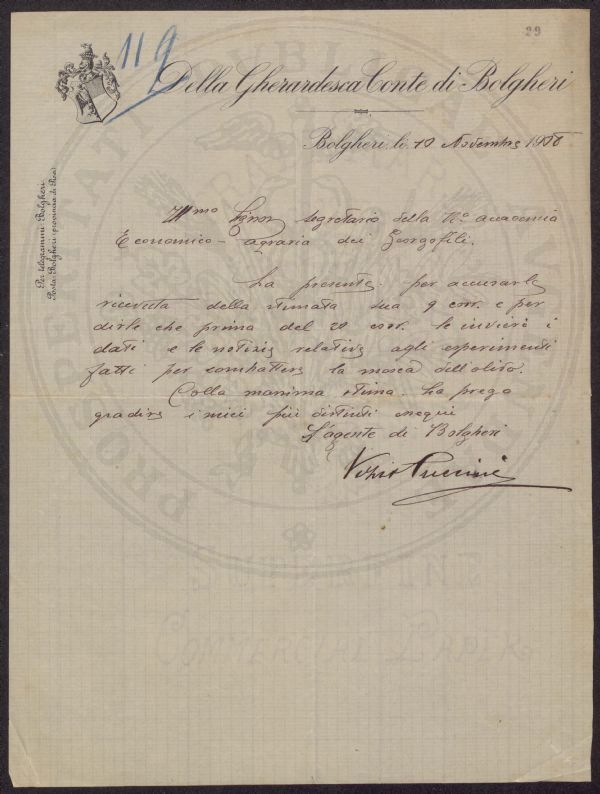 29
119
Della Gherardesca Conte di Bolgheri
Bolgheri, lì 10 Novembre 1908
Per telegrammi: Bolgheri
Posta: Bolgheri (provincia di Pisa)
Ill.mo Signor Segretario della R.a accademia
Economico-agraria dei Georgofili.
La presente per accusarle
ricevuta della stimata sua 9 corr. e per
dirle che prima del 20 corr. le invierò i
dati e le notizie relative agli esperimenti
fatti per combattere la mosca dell'olivo.
Colla massima stima la prego
gradire i miei più distinti ossequi
L'agente di Bolgheri
Puccini
COMMERCIAL PAPER